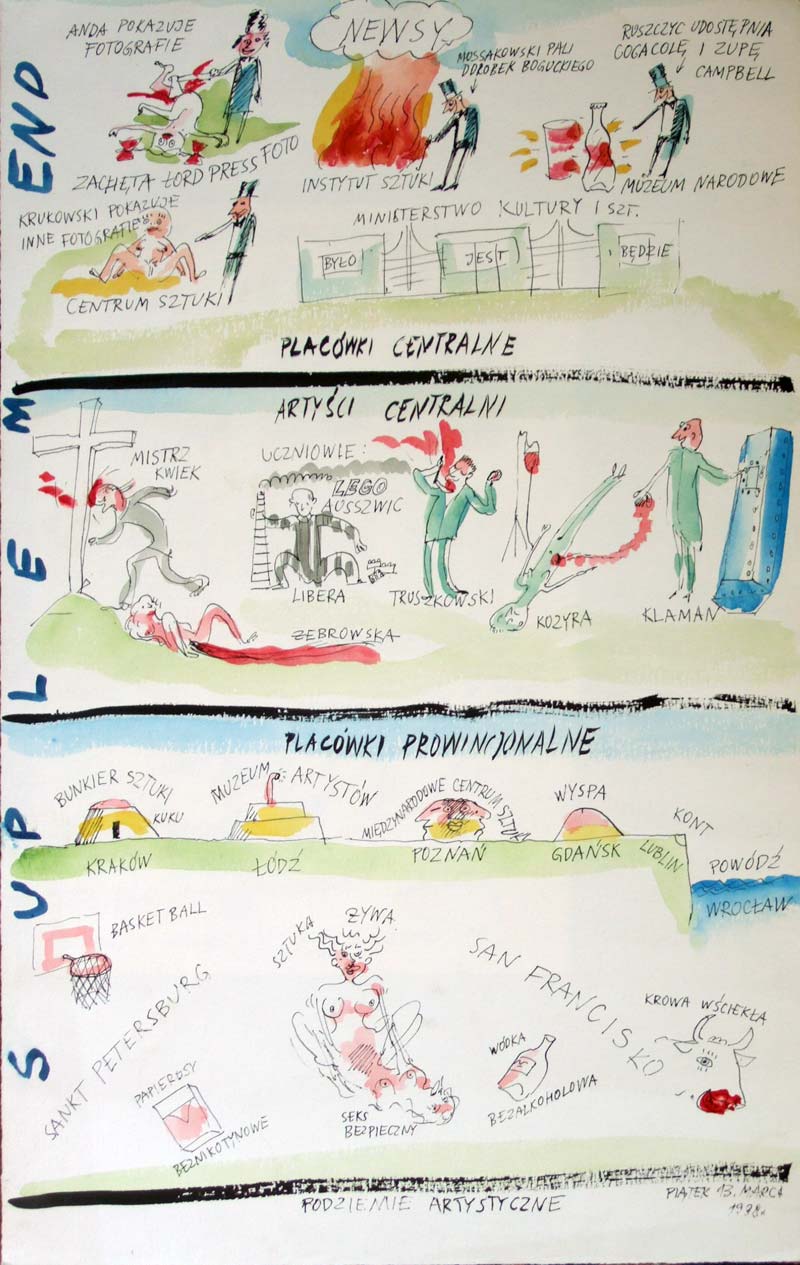 SUPLEMEND
NEWSY
ANDA POKAZUJE
FOTOGRAFIE
ZACHĘTA ŁORD PRESS FOTO
MOSSAKOWSKI PALI
DOROBEK BOGUCKIEGO
INSTYTUT SZTUKI
RUSZCZYC UDOSTĘPNIA
COGACOLĘ I ZUPĘ
CAMPBELL
MUZEUM NARODOWE
KRUKOWSKI POKAZUJE
INNE FOTOGRAFIE
CENTRUM SZTUKI
MINISTERSTWO KULTURY I SZT.
BYŁO
JEST
BĘDZIE
PLACÓWKI CENTRALNE
ARTYŚCI CENTRALNI
MISTRZ
KWIEK
ŻEBROWSKA
UCZNIOWIE:
LEGO
AUSSZWIC
LIBERA
TRUSZKOWSKI
KOZYRA
KLAMAN
PLACÓWKI PROWINCJONALNE
BUNKIER SZTUKI
KUKU
KRAKÓW
MUZEUM ARTYSTÓW
ŁÓDŹ
MIĘDZYNARODOWE CENTRUM SZTUKI
POZNAŃ
WYSPA
GDAŃSK
KONT
LUBLIN
POWÓDŹ
WROCŁAW
BASKETBALL
SANKT PETERSBURG
PAPIEROSY
BEZNIKOTYNOWE
SZTUKA ŻYWA
SEKS
BEZPIECZNY
SAN FRANCISKO
WÓDKA
BEZALKOHOLOWA
KROWA WŚCIEKŁA
PODZIEMIE ARTYSTYCZNE
PIĄTEK 13. MARCA
1998r.